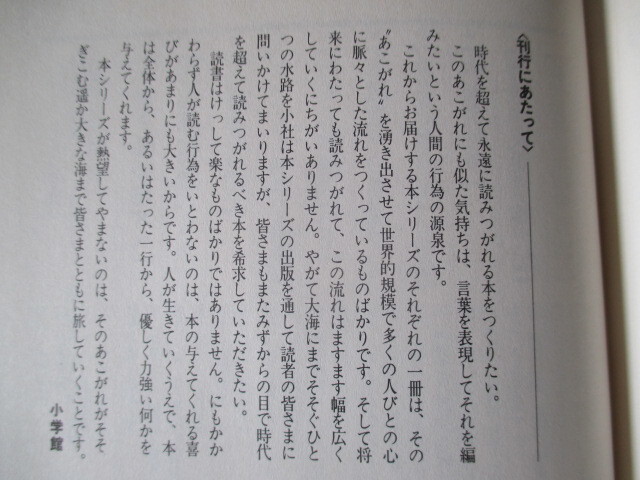 〈刊行にあたって〉
時代を超えて永遠に読みつがれる本をつくりたい。
このあこがれにも似た気持ちは、言葉を表現してそれを編
みたいという人間の行為の源泉です。
これからお届けする本シリーズのそれぞれの一冊は、その
〝あこがれ〟を湧き出させて世界的規模で多くの人びとの心
に脈々とした流れをつくっているものばかりです。そして将
来にわたっても読みつがれて、この流れはますます幅を広く
していくにちがいありません。やがて大海にまでそそぐひと
つの水路を小社は本シリーズの出版を通して読者の皆さまに
問いかけてまいりますが、皆さまもまたみずからの目で時代
を超えて読みつがれるべき本を希求していただきたい。
読書はけっして楽なものばかりではありません。にもかか
わらず人が読む行為をいとわないのは、本の与えてくれる喜
びがあまりにも大きいからです。人が生きていくうえで、本
は全体から、あるいはたった一行から、優しく力強い何かを
与えてくれます。
本シリーズが熱望してやまないのは、そのあこがれがそそ
ぎこむ遥か大きな海まで皆さまとともに旅していくことです。
小学館